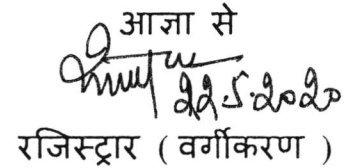 आज्ञा से
22.5.2020
रजिस्ट्रार ( वर्गीकरण )